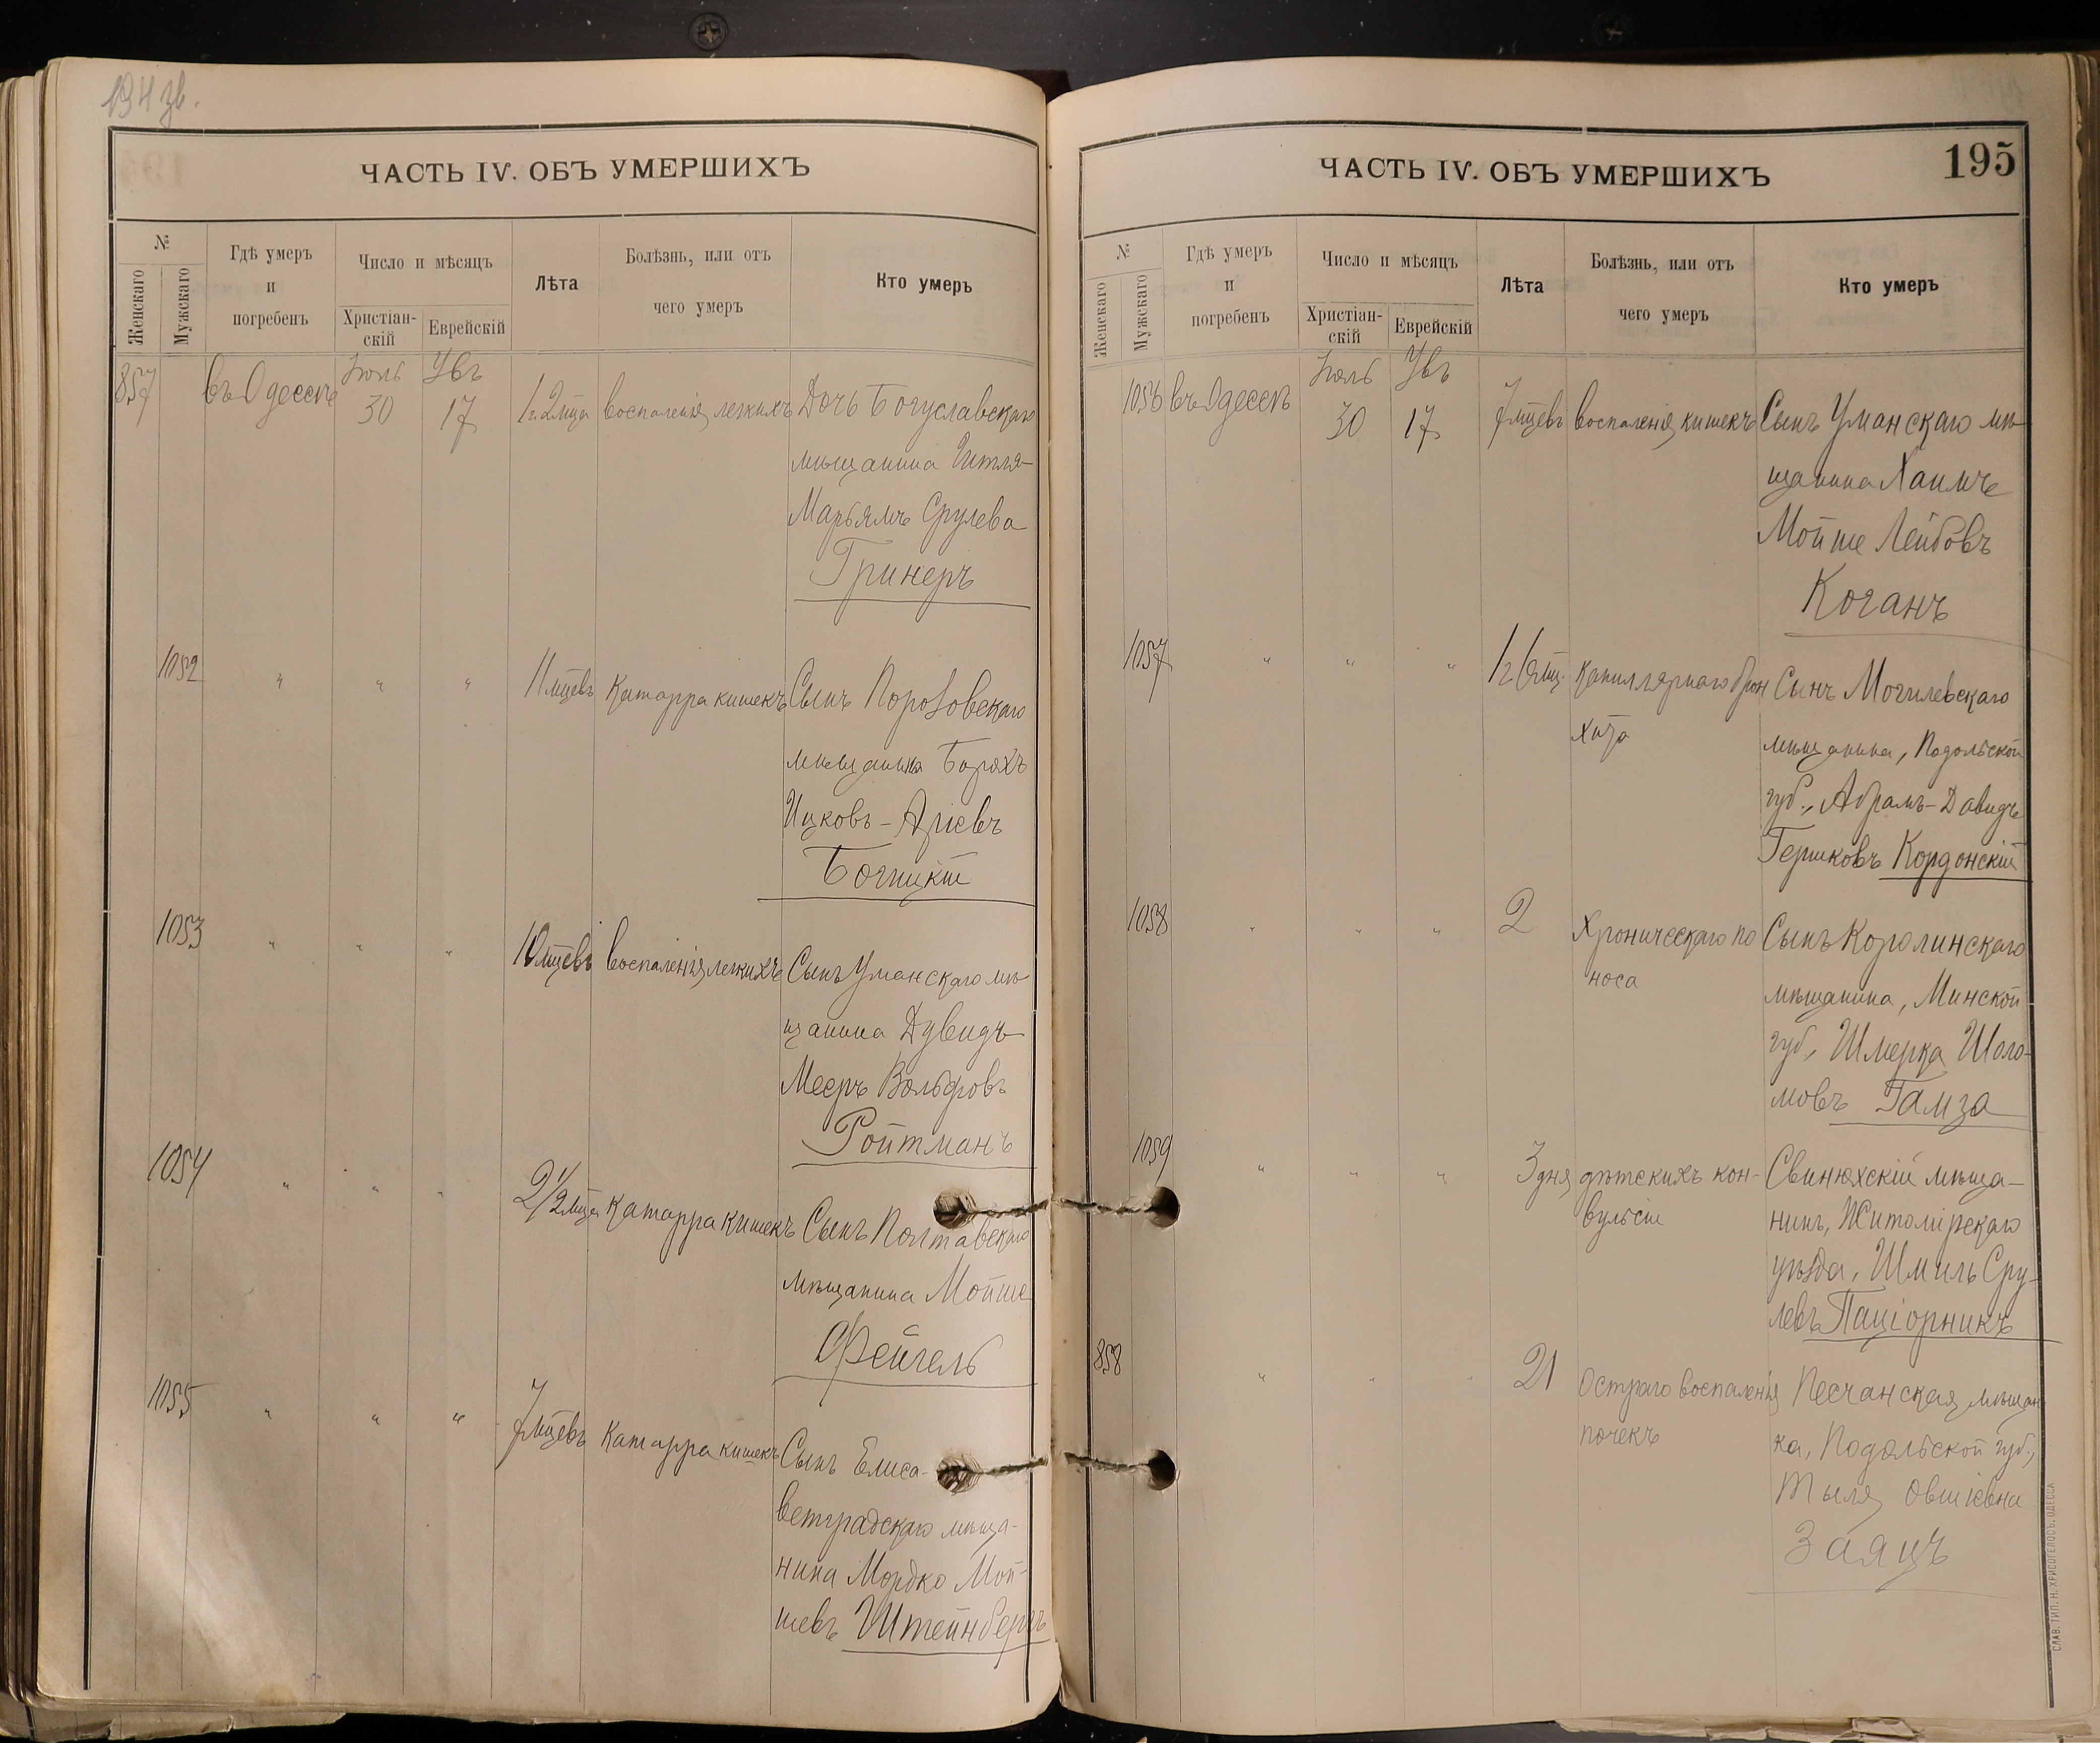 194 зв.
ЧАСТЬ IV. ОБЪ УМЕРШИХЪ
№
Женскаго
Мужскаго
Гдѣ умеръ
и
погребенъ
Число и мѣсяцъ
Христіан-
скій
Еврейскій
Лѣта
Болѣзнь, или отъ
чего умеръ
Кто умеръ
857 въ Одессѣ Іюль 30 Увъ 17 1 г. 2 мца воспаленія легкихъ Дочь Богуславскаго
мѣщанина Гитля-
Марьямъ Срулева
Гринеръ
1052 " " " 11 мцевъ Катарра кишекъ Сынъ
мѣщанина Борахъ
Ицковъ-Аріевъ
Богицкій
1053 " " " 10 мцевъ воспаленія легкихъ Сынъ Уманскаго мѣ-
щанина Дувидъ-
Мееръ Вольфовъ
Ройтманъ
1054 " " " 2 1/2 мца Катарра кишекъ Сынъ Полтавскаго
мѣщанина Мойше
Фейгель
1055 " " " 7 мцевъ Катарра кишекъ Сынъ Елиса-
ветградскаго мѣща-
нина Мордко Мой-
шевъ Штейнбергъ
195
ЧАСТЬ IV. ОБЪ УМЕРШИХЪ
№
Женскаго
Мужскаго
Гдѣ умеръ
и
погребенъ
Число и мѣсяцъ
Христіан-
скій
Еврейскій
Лѣта
Болѣзнь, или отъ
чего умеръ
Кто умеръ
1056 въ Одессѣ Іюль 30 Увъ 17 7 мцевъ воспаленія кишекъ Сынъ Уманскаго мѣ-
щанина Хаимъ
Мойше Лейбовъ
Коганъ
1057 " " " 1 г. 6 мц. Капиллярнаго брон Сынъ Могилевскаго
хита мѣщанина, Подольской
губ., Абрамъ-Давидъ
Гершковъ Кордонскій
1058 " " " 2 Хроническаго по Сынъ Королинскаго
носа мѣщанина, Минской
губ., Шмерка Шоло-
мовъ Гамза
1059 " " " 3 дня дѣтскихъ кон- Свинюхскій мѣща-
вульсій нинъ, Житомірскаго
уѣзда, Шмиль Сру-
левъ Паціорникъ
858 " " " 21 Остраго воспаленія Песчанская мѣщан
почекъ ка, Подольской губ.,
Тыля Овшіевна
Заяцъ
СЛАВ. ТИП. Н. ХРИСОГЕЛОСЪ, ОДЕССА